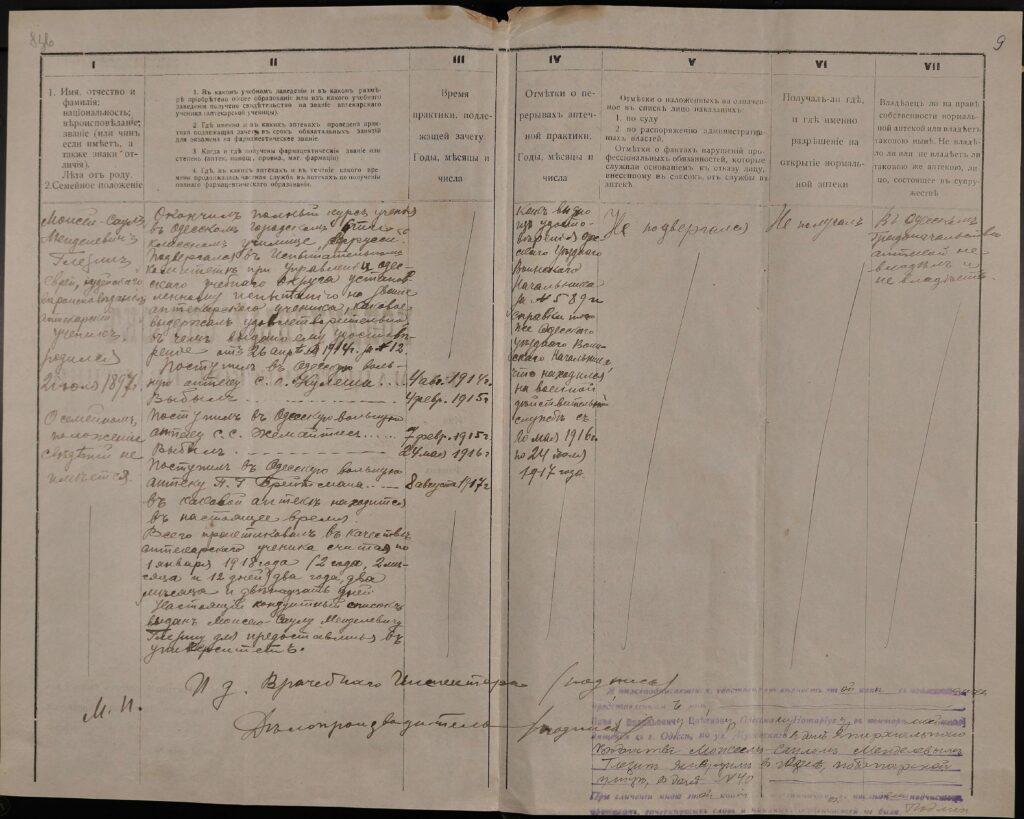 846
9
I
II
III
IV
V
VI
VII
1. Имя, отчество и
фамилія;
національность;
вѣроисповѣданіе;
званіе (или чинъ
если имѣетъ, а
также знаки от-
личія).
Лѣта отъ роду.
2.Семейное положеніе
1. Въ какомъ учебномъ заведеніи и въ какомъ размѣ-
рѣ пріобрѣтено общее образованіе или изъ какого учебнаго
заведенія получено свидѣтельство на званіе аптекарскаго
ученика (аптекарской ученицы).
2. Гдѣ именно и въ какихъ аптекахъ проведена прак-
тика подлежащая зачету въ срокъ обязательныхъ занятій
для экзамена на фармацевтическое званіе.
3. Когда и гдѣ получены фармацевтическія званіе или
степень (аптек. помощ., провиз., маг. фармаціи)
4. Гдѣ, въ какихъ аптекахъ и въ теченіе какого вре-
мени продолжалась частная служба въ аптекахъ по полученіи
полнаго фармацевтическаго образованія.
Время
практики, подле-
жащей зачету.
Годы, мѣсяцы и
числа
Отмѣтки о пе-
рерывахъ аптеч-
ной практики.
Годы, мѣсяцы и
числа
Отмѣтки о наложенныхъ на означен-
ное въ спискѣ лицо наказаніяхъ:
1. по суду
2. по распоряженію административ-
ныхъ властей.
Отмѣтки о фактахъ нарушеній про-
фессіональныхъ обязанностей, которые
служили основаніемъ къ отказу лицу,
внесенному въ списокъ, отъ службы въ
аптекѣ
Получалъ-ли гдѣ,
и гдѣ именно
разрѣшеніе на
открытіе нормаль-
ной аптеки
Владѣлецъ ли на правѣ
собственности нормаль-
ной аптекой или владѣлъ
таковою нынѣ. Не владѣ-
лъ ли или не владѣетъ ли
таковою же аптекою, ли-
цо, состоящее въ супру-
жествѣ
Моисей-Саулъ
Менделевичъ
Глезинъ
еврей, іудейскаго
вѣроисповѣданія
аптекарскій
ученикъ
родился
2 іюля 1897г.
О семейномъ
положеніи
свѣдѣній не
имѣется.
Окончилъ полный курсъ ученія
въ Одесскомъ городскомъ 6ти
классномъ училищѣ,
Подвергался въ Испытательномъ
Комитетѣ при Управленіи Одес-
скаго учебнаго Округа установ-
ленному испытанію на званіе
аптекарскаго ученика, каковое
выдержалъ удовлетворительно,
въ чемъ выдано ему удостовѣ-
реніе отъ 26 апрѣля 1914г. за №12.
Поступилъ въ Одесскую воль-
ную аптеку С. О. Кулеша...
Выбылъ
Поступилъ въ Одесскую вольную
аптеку С.С. Жемайтиса.....
Выбылъ
Поступилъ въ Одесскую вольную
аптеку Я. Г. Брейтмана...
въ каковой аптекѣ находится
въ настоящее время.
Всего практиковалъ въ качествѣ
аптекарскаго ученика считая по
1 января 1918 года (2 года, 2 мѣ-
сяца и 12 дней) два года, два
мѣсяца и двѣнадцать дней
Настоящій кондуитный списокъ
выданъ Моисею-Саулу Менделевичу
Глезину для представленія въ
университетъ.
4 авг. 1914г.
4 февр. 1915г
7 февр. 1915г.
24 мая 1916г
8 августа 1917г
Какъ видно
изъ удосто-
вѣренія Оде-
скаго Уѣзднаго
Воинскаго
Начальника
за №589 и
справки того
же Одесскаго
уѣзднаго Воин-
скаго Начальника,
что находился
на военной
дѣйствительной
службѣ съ
мая 1916г.
по 24 іюля
1917 года.
Не подвергался
Не получалъ
Въ Одесскомъ
Градоначальствѣ
аптекой не
владѣлъ и
не владѣетъ
И д. Врачебнаго Инспектора (подпись)
М. П.
Дѣлопроизводитель (подпись)
Моисеемъ-Сауломъ Менделевымъ
Глезинъ живущимъ въ Одессѣ,
№40